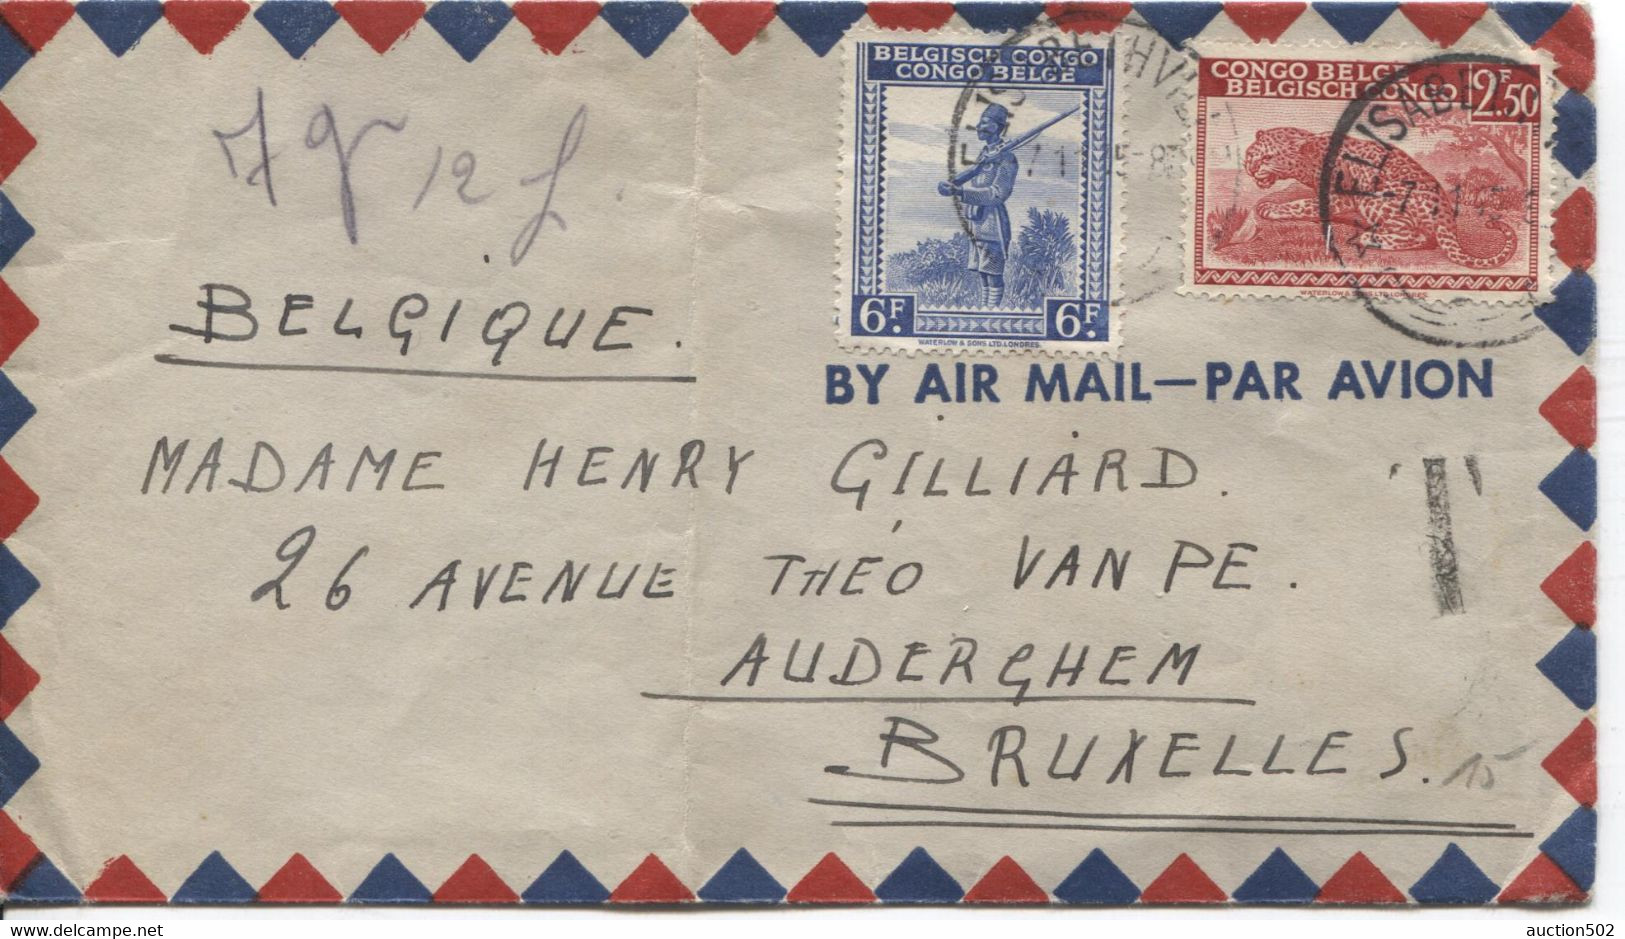 BELGISCH CONGO
CONGO BELGE
6F. 6F.
WATERLOW & SONS LTD. LONDRES.
CONGO BELGE
BELGISCH CONGO
2F.50
WATERLOW & SONS LTD. LONDRES.
7gr 12 f.
BELGIQUE.
BY AIR MAIL—PAR AVION
MADAME HENRY GILLIARD.
26 AVENUE THÉO VAN PE.
AUDERGHEM
BRUXELLES.
15
auction502